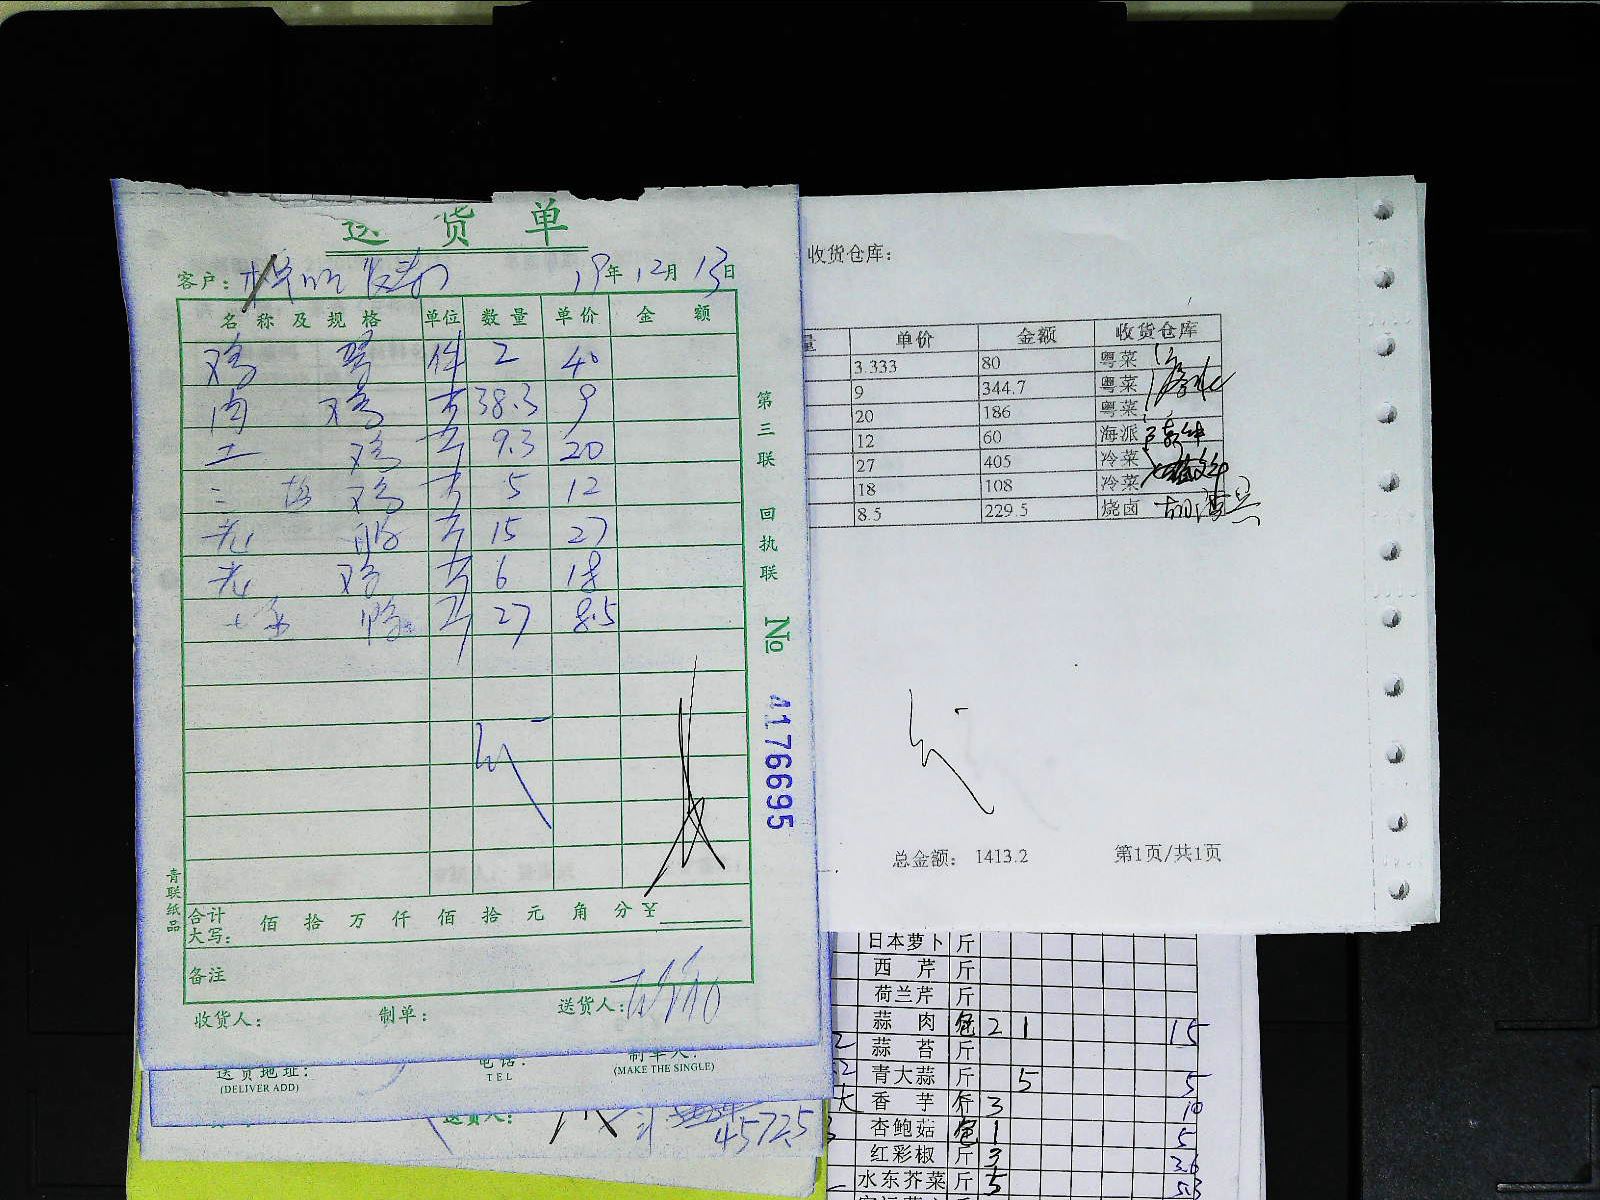 送货单
客户： 19年12月13日
名称及规格 单位 数量 单价 金额
鸡 件 2 40
肉 鸡 斤 38.3 9
土 鸡 斤 9.3 20
三 鸡 斤 5 12
老 鸭 斤 15 27
老 鸡 斤 6 18
鸭 斤 27 8.5
合计大写： 佰 拾 万 仟 佰 拾 元 角 分 ¥
备注
收货人： 制单： 送货人：
第三联 回执联
No 4176695
青联纸品
送货地址：
(DELIVER ADD)
电话：
TEL
制单人：
(MAKE THE SINGLE)
送货人：
4572.5
收货仓库：
量 单价 金额 收货仓库
3.333 80 粤菜
9 344.7 粤菜
20 186 粤菜
12 60 海派
27 405 冷菜
18 108 冷菜
8.5 229.5 烧卤
总金额： 1413.2 第1页/共1页
日本萝卜 斤
西芹 斤
荷兰芹 斤
蒜肉 包 2 1 15
蒜苔 斤
青大蒜 斤 5 5
香芋 斤 3 10
杏鲍菇 包 1 5
红彩椒 斤 3 3.6
水东芥菜 斤 5 5.3